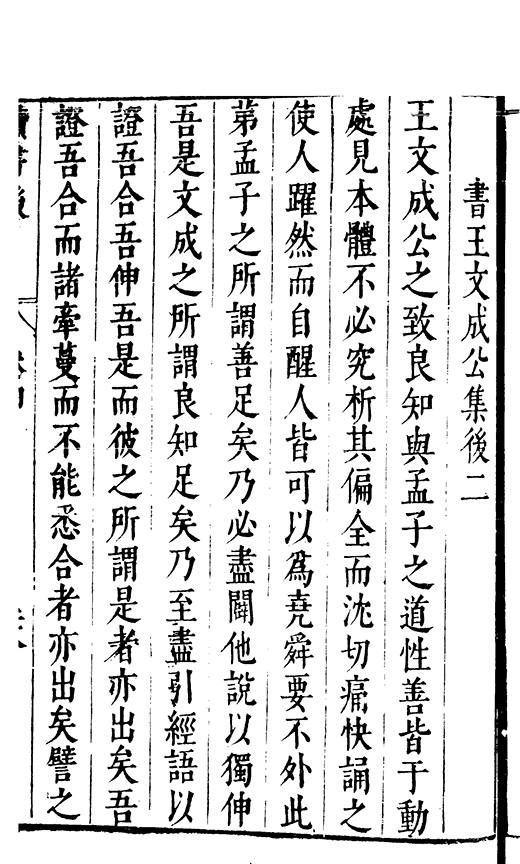 書王文成公集後二
王文成公之致良知與孟子之道性善皆于動
處見本體不必究析其偏全而沈切痛快誦之
使人躍然而自醒人皆可以爲堯舜要不外此
弟孟子之所謂善足矣乃必盡闢他說以獨伸
吾是文成之所謂良知足矣乃至盡引經語以
證吾合吾伸吾是而彼之所謂是者亦出矣吾
證吾合而諸牽蔓而不能悉合者亦出矣譬之
讀書後